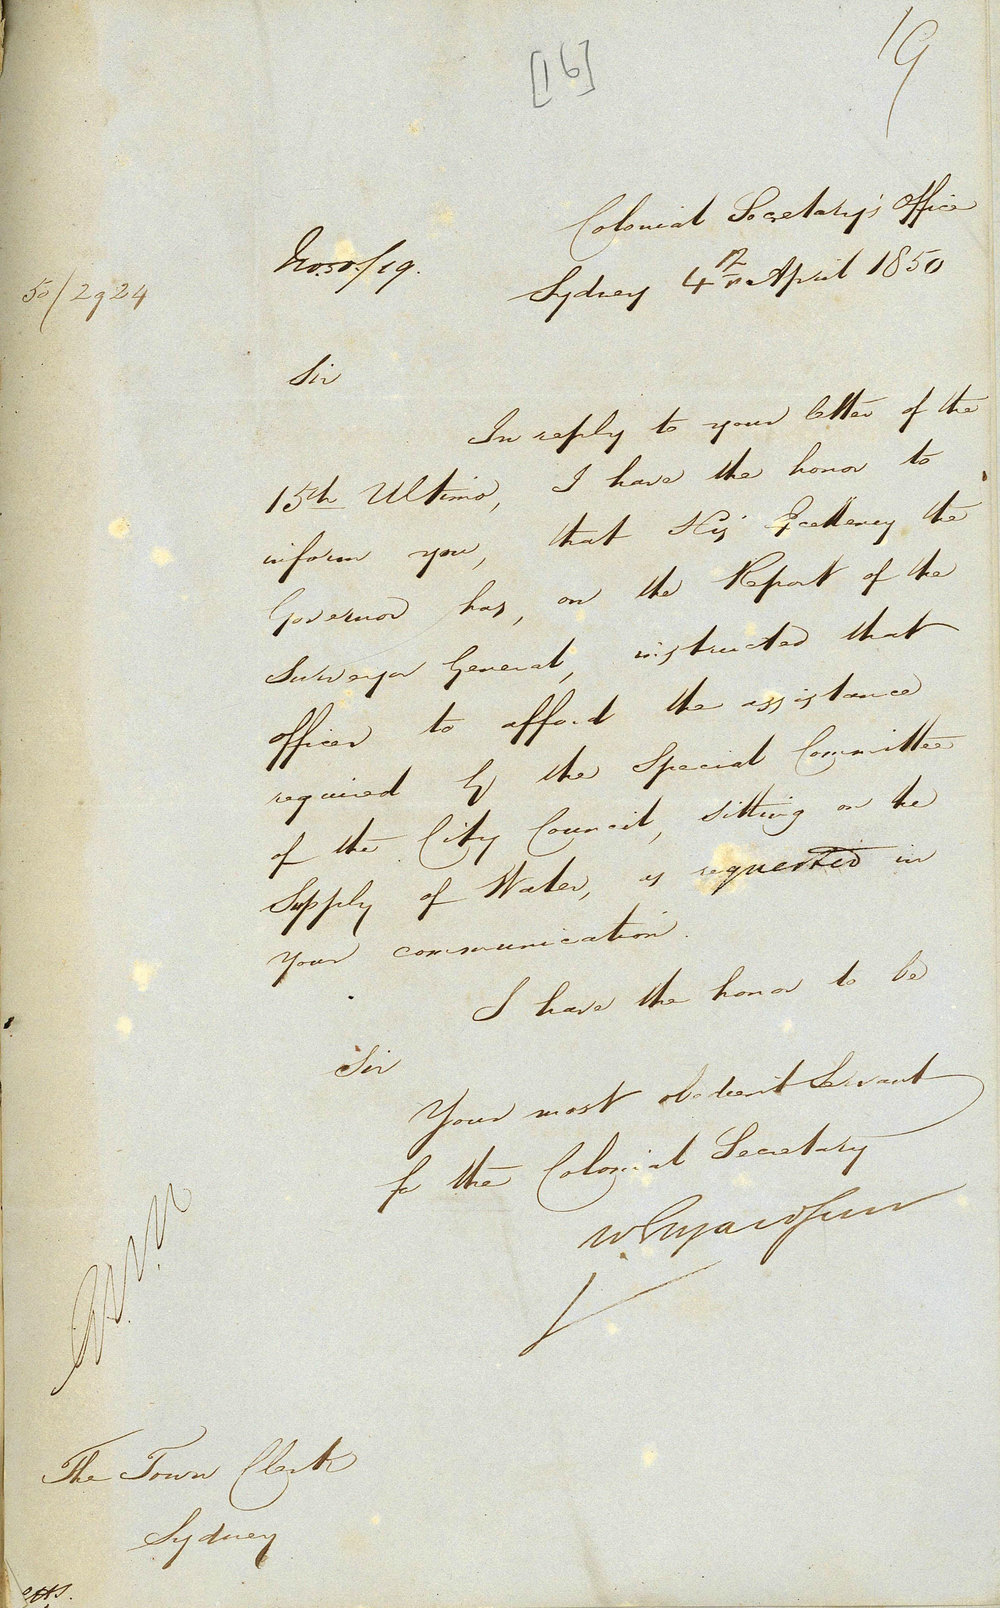 19
[16]
Colonial Secretary's Office
No. 50/19.
Sydney 4th April 1850
50/2924
Sir
In reply to your letter of the
15th Ultimo, I have the honor to
inform you, that His Excellency the
Governor has, on the Report of the
Surveyor General, instructed that
officer to afford the assistance
required by the Special Committee
of the City Council, sitting on the
Supply of Water, as requested in
your communication.
I have the honor to be
Sir
Your most obedient Servant
for the Colonial Secretary
The Town Clerk
Sydney